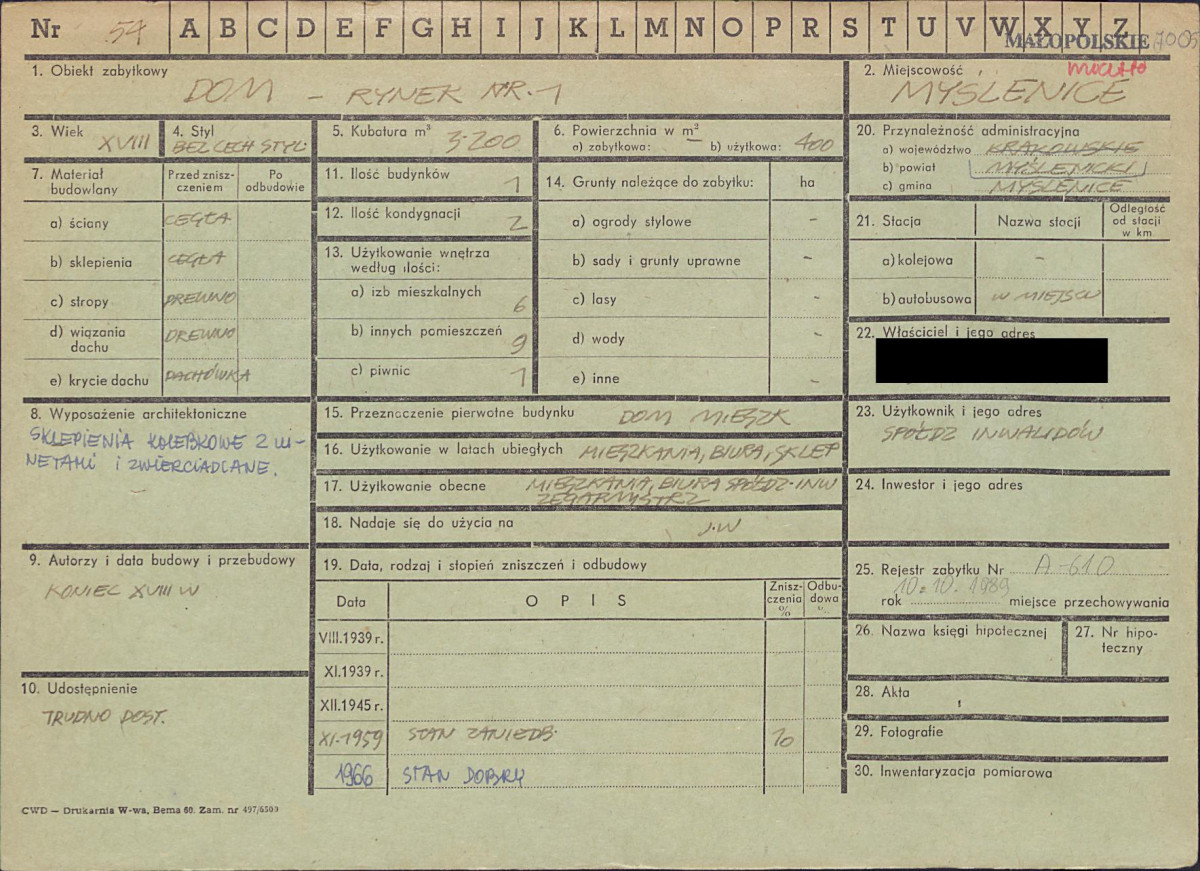 Nr 54 A B C D E F G H I J K L M N O P R S T U V W X Y Z
MAŁOPOLSKIE
1. Obiekt zabytkowy
DOM – RYNEK NR. 1
2. Miejscowość
MYŚLENICE
3. Wiek
XVIII
4. Styl
BEZ CECH STYL.
5. Kubatura m³
3.200
6. Powierzchnia w m²
a) zabytkowa: – b) użytkowa: 400
7. Materiał budowlany
Przed znisz-
czeniem
Po
odbudowie
a) ściany CEGŁA
b) sklepienia CEGŁA
c) stropy DREWNO
d) wiązania
dachu DREWNO
e) krycie dachu DACHÓWKA
8. Wyposażenie architektoniczne
SKLEPIENIA KOLEBKOWE Z LU-
NETAMI I ZWIERCIADLANE.
9. Autorzy i data budowy i przebudowy
KONIEC XVIII W
10. Udostępnienie
TRUDNO DOST.
11. Ilość budynków
1
12. Ilość kondygnacji
2
13. Użytkowanie wnętrza
według ilości:
a) izb mieszkalnych 6
b) innych pomieszczeń 9
c) piwnic 1
14. Grunty należące do zabytku: ha
a) ogrody stylowe –
b) sady i grunty uprawne –
c) lasy –
d) wody –
e) inne –
15. Przeznaczenie pierwotne budynku DOM MIESZK
16. Użytkowanie w latach ubiegłych MIESZKANIA, BIURA, SKLEP
17. Użytkowanie obecne MIESZKANIA, BIURA SPÓŁDZ. INW
ZEGARMISTRZ
18. Nadaje się do użycia na J.W
19. Data, rodzaj i stopień zniszczeń i odbudowy
Data O P I S Znisz-
czenia
% Odbu-
dowa
%
VIII.1939 r.
XI.1939 r.
XII.1945 r.
XI.1959 STAN ZANIEDB. 10
1966 STAN DOBRY
20. Przynależność administracyjna
a) województwo KRAKOWSKIE
b) powiat MYŚLENICKI
c) gmina MYŚLENICE
21. Stacja Nazwa stacji Odległość
od stacji
w km
a) kolejowa –
b) autobusowa W MIEJSCU
22. Właściciel i jego adres
23. Użytkownik i jego adres
SPÓŁDZ INWALIDÓW
24. Inwestor i jego adres
25. Rejestr zabytku Nr A-610
10.10.1989
rok miejsce przechowywania
26. Nazwa księgi hipotecznej
27. Nr hipo-
teczny
28. Akta
29. Fotografie
30. Inwentaryzacja pomiarowa
CWD — Drukarnia W-wa, Bema 60. Zam. nr 497/6509